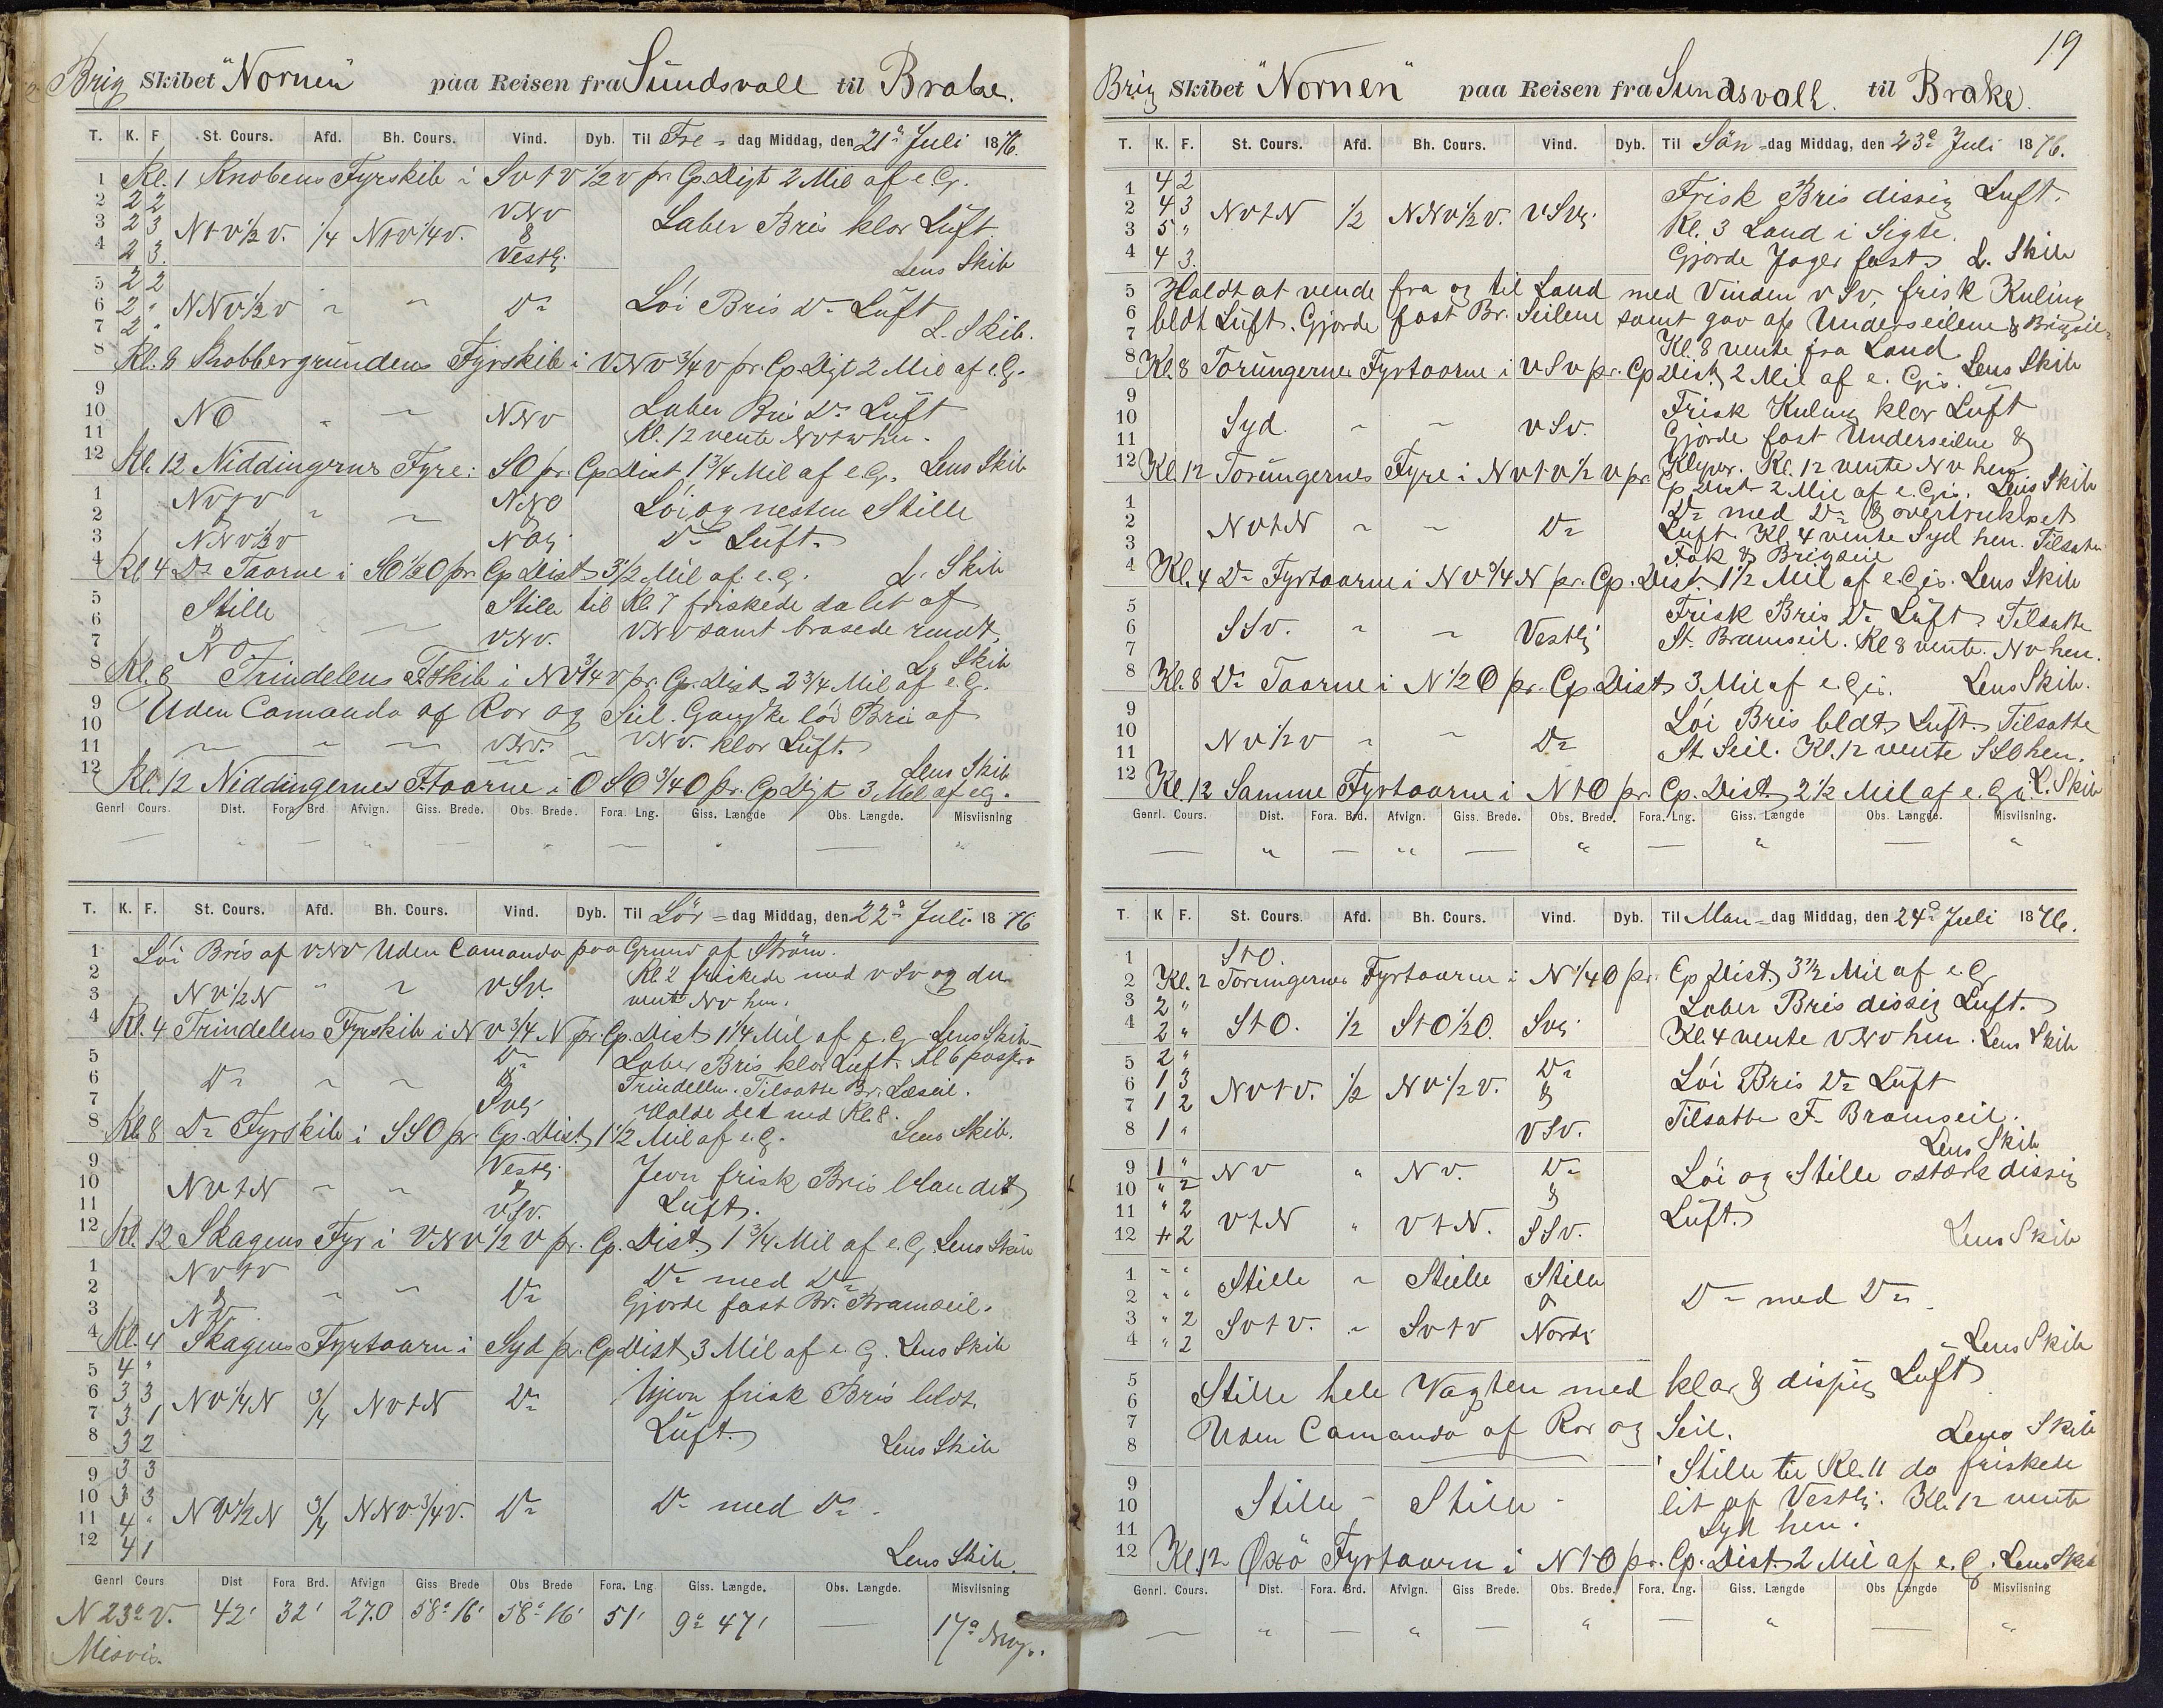 Brig Skibet "Nornen" paa Reisen fra Sundsvall til Brake.
T. K. F. St. Cours. Afd. Bh. Cours. Vind. Dyb. Til Fre - dag Middag, den 21de Juli 1876.
1 Kl. 1 Knobens Fyrskib i Sv t v 1/2 v pr. Cp. Dist 2 Mil af e. G.
2 2 2 VNV
3 2 3 N t v 1/2 v. 1/4 N t v 1/4 v. & Laber Bris klar Luft
4 2 3. Vestlig Lens Skib
5 2 2
6 2 " NNv 1/2 v " " Do Löi Bris Do Luft
7 2 " L. Skib.
8 Kl. 8 Kobbergrundens Fyrskib i VNV 3/4 v pr. Cp. Dist 2 Mil af e. G.
9
10 NO " " NNV Laber Bris Do Luft
11 Kl. 12 vente Nv t v hen.
12 Kl. 12 Niddingerne Fyre i SO pr. Cp Dist 1 3/4 Mil af e. G. Lens Skib
1 Nv t v NNO Löi og nesten Stille
2 & " "
3 NNv 1/2 v NOlig Do Luft.
4 Kl. 4 Do Taarne i SO 1/2 O pr. Cp Dist 3 1/2 Mil af e. G. L. Skib
5 Stille Stille til Kl. 7 friskede da lit af
6 & " VNV. VNV samt brasede rundt.
7 NO Lg Skib
8 Kl. 8 Trindelens F.Skib i NV 3/4 v pr. Cp. Dist 2 3/4 Mil af e. G.
9 Uden Comando af Ror og Seil. Ganske löi Bris af
10
11 " " " VNV. " VNV. klar Luft.
12 Kl. 12 Niddingernes F.taarne i OSO 3/4 O pr. Cp Dist 3 Mil af e G. Lens Skib
Genrl Cours. Dist. Fora Brd. Afvign. Giss. Brede. Obs. Brede. Fora. Lng. Giss. Længde Obs. Længde. Misviisning
— " — " — " — " — "
T. K. F. St. Cours. Afd. Bh. Cours. Vind. Dyb. Til Lör - dag Middag, den 22de Juli 1876
1 Löi Bris af VNV Uden Comando paa Grund af Ström.
2 Kl. 2 friskede med VSV og da
3 NV 1/2 N " " VSV. vente NV hen.
4 Kl. 4 Trindelens Fyrskib i NV 3/4 N pr. Cp. Dist 1 1/4 Mil af e. G. Lens Skib
5 Do Laber Bris klar Luft. Kl 6 passere
6 Do " " & Trindelen. Tilsatte Br. Læseil.
7 SVlig Halde det ned Kl. 8.
8 Kl. 8 Do Fyrskib i SSO pr. Cp. Dist 1 1/2 Mil af e. G. Lens Skib.
9 Vestlig Jevn frisk Bris blandet
10 NV t N " " &
11 VSV. Luft.
12 Kl. 12 Skagens Fyr i VNV 1/2 V pr. Cp. Dist. 1 3/4 Mil af e. G. Lens Skib
1 NV t V Do med Do
2 & " " Do Gjorde fast Br. Bramseil.
3 NV
4 Kl. 4 Skagens Fyrtaarn i Syd pr. Cp Dist 3 Mil af e. G. Lens Skib
5 4 "
6 3 3 NV 1/4 N 3/4 NV t N Do Ujevn frisk Bris bldt.
7 3 1 Luft.
8 3 2 Lens Skib
9 3 3
10 3 3 NV 1/2 N 3/4 NNV 3/4 V. Do Do med Do.
11 4 "
12 4 1 Lens Skib.
Genrl Cours Dist Fora Brd. Afvign Giss Brede Obs Brede Fora. Lng Giss. Længde. Obs. Længde. Misviisning
N 23° V. 42' 32' 27.0 58° 16' 58° 16' 51' 9° 47' — 17°
Misvis.
19
Brig Skibet "Nornen" paa Reisen fra Sundsvall. til Brake.
T. K. F. St. Cours. Afd. Bh. Cours. Vind. Dyb. Til Sön - dag Middag, den 23de Juli 1876.
1 4 2 Frisk Bris dissig Luft.
2 4 3 NV t N 1/2 NNV 1/2 V. VSVlig Kl. 3 Land i Sigte.
3 5 "
4 4 3. Gjorde Jager fast L. Skib
5 Holdt at vende fra og til Land med Vinden VSV, frisk Kuling
6 bldt Luft. Gjorde fast Br. Seilene samt gav op Underseilene & Brigseil
7 Kl. 8 vente fra Land
8 Kl. 8 Torungernes Fyrtaarne i VSV pr. Cp Dist. 2 Mil af e. Gis. Lens Skib
9 Frisk Kuling klar Luft
10 Syd. " " VSV. Gjorde fast Underseilene &
11 Klyver. Kl. 12 vente NV hen
12 Kl. 12 Torungernes Fyre i NV t V 1/2 V pr. Cp Dist 2 Mil af e. Gis. Lens Skib
1 Do med Do & overtrukket
2 NV t N " " Do Luft. Kl. 4 vente Syd hen. Tilsatte
3 Fok & Brigseil
4 Kl. 4 Do Fyrtaarne i NV 3/4 N pr. Cp. Dist. 1 1/2 Mil af e. Gis. Lens Skib
5 Frisk Bris Do Luft. Tilsatte
6 SSV. " " Vestlig St. Bramseil. Kl 8 vente NV hen.
7
8 Kl. 8 Do Taarne i N 1/2 O pr. Cp. Dist 3 Mil af e. Gis. Lens Skib.
9 Löi Bris bldt Luft. Tilsatte
10 NV 1/2 V " " Do
11 St. Seil. Kl. 12 vente StO hen.
12 Kl. 12 Samme Fyrtaarne i N t O pr. Cp. Dist 2 1/2 Mil af e. Gis. L. Skib
Genrl. Cours. Dist. Fora. Brd. Afvign. Giss. Brede. Obs. Brede. Fora. Lng. Giss. Længde Obs. Længde. Misviisning.
— " — " — " — " — "
T. K F. St. Cours. Afd. Bh. Cours. Vind. Dyb. Til Man - dag Middag, den 24de Juli 1876.
1 StO.
2 Kl. 2 Torungernes Fyrtaarne i N 1/4 O pr. Cp Dist 3 1/2 Mil af e. G
3 2 " Laber Bris dissig Luft.
4 2 " StO. 1/2 StO 1/2 O. SVlig Kl. 4 vente VNV hen. Lens Skib
5 2 " Do
6 1 3 NV t V. 1/2 NV 1/2 V. & Löi Bris Do Luft
7 1 2 Tilsatte F. Bramseil.
8 1 " VSV. Lens Skib
9 1 " NV " NV. Do Löi og Stille stærk dissig
10 " 2 &
11 " 2 V t N " V t N. SSV. Luft.
12 " 2 Lens Skib
1 " " Stille " Stille Stille
2 " " & Do med Do.
3 " 2 SV t V. " SV t V Nordlig
4 " 2 Lens Skib
5 Stille hele Vagten med klar & dissig Luft
6
7 Uden Comando af Ror og Seil. Lens Skib
8
9 Stille til Kl. 11 da friskede
10 Stille - Stille - lit af Vestlig. Kl. 12 vente
11 Syd hen.
12 Kl. 12 Oxö Fyrtaarn i N t O pr. Cp. Dist 2 Mil af e. G. Lens Skib
Genrl. Cours. Dist. Fora. Brd. Afvign. Giss Brede. Obs. Brede. Fora. Lng. Giss. Længde Obs Længde Misviisning
— " — " — " — " — "